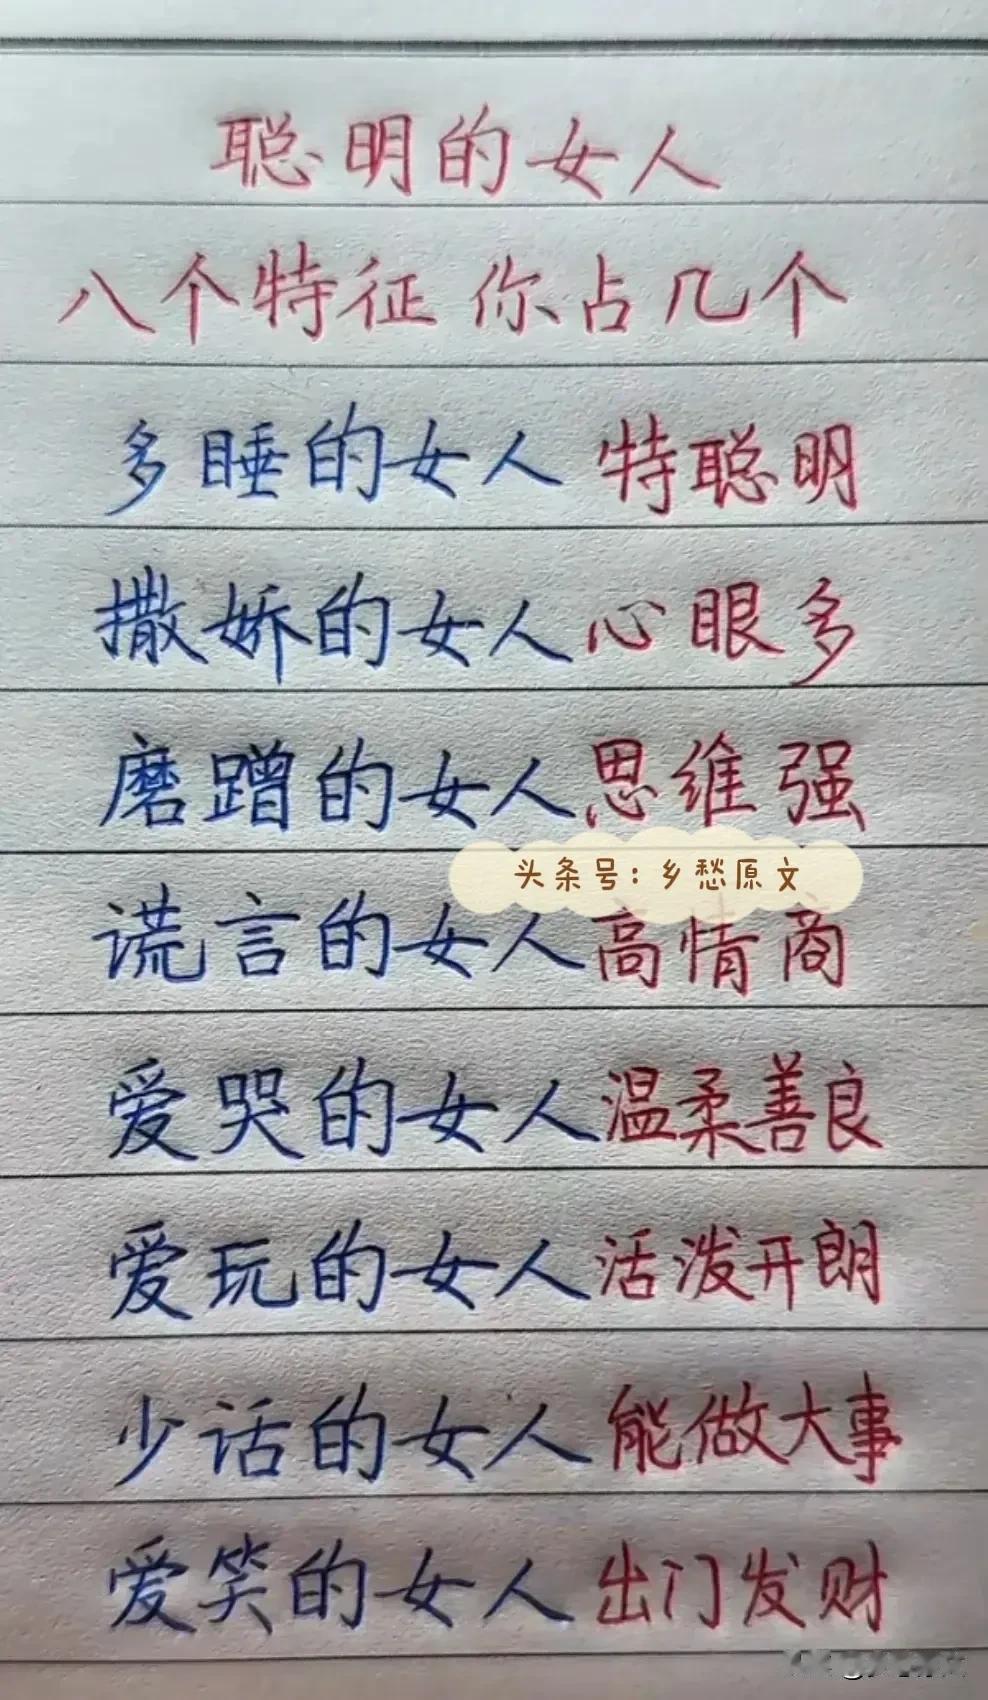 聪明的女人
八个特征 你占几个
多睡的女人 特聪明
撒娇的女人 心眼多
磨蹭的女人 思维强
头条号:乡愁原文
谎言的女人 高情商
爱哭的女人 温柔善良
爱玩的女人 活泼开朗
少话的女人 能做大事
爱笑的女人 出门发财